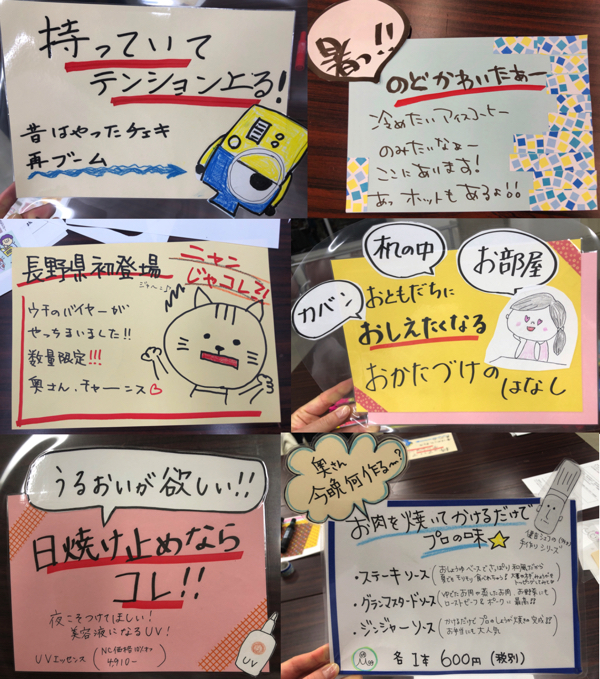 持っていて
テンション上る!
昔はやったチェキ
再ブーム
暑い!!
のどかわいたぁー
冷めたいアイスコーヒー
のみたいなぁー
ここにあります!
あっ ホットもあるよ!!
長野県初登場
ニャン
じゃコレ?!
ジャーン
ウチのバイヤーが
やっちまいました!!
数量限定!!!
奥さん、チャーーンス♡
机の中
お部屋
カバン
おともだちに
おしえたくなる
おかたづけの
はなし
うるおいが欲しい!!
日焼け止めなら
コレ!!
夜こそつけてほしい!
美容液になるUV!
UVエッセンス
4,910-
UV
奥さん
今晩何作る〜?
お肉を焼いてかけるだけで
プロの味☆
手作りシリーズ
・ステーキソース
・グランマスタードソース
・ジンジャーソース
各 1本 600円 (税別)